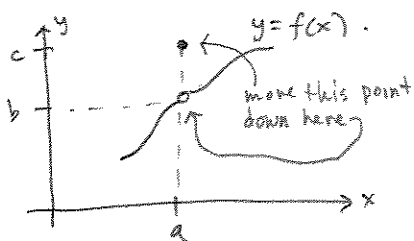 y
y = f(x).
c
move this point
b
down here
x
a